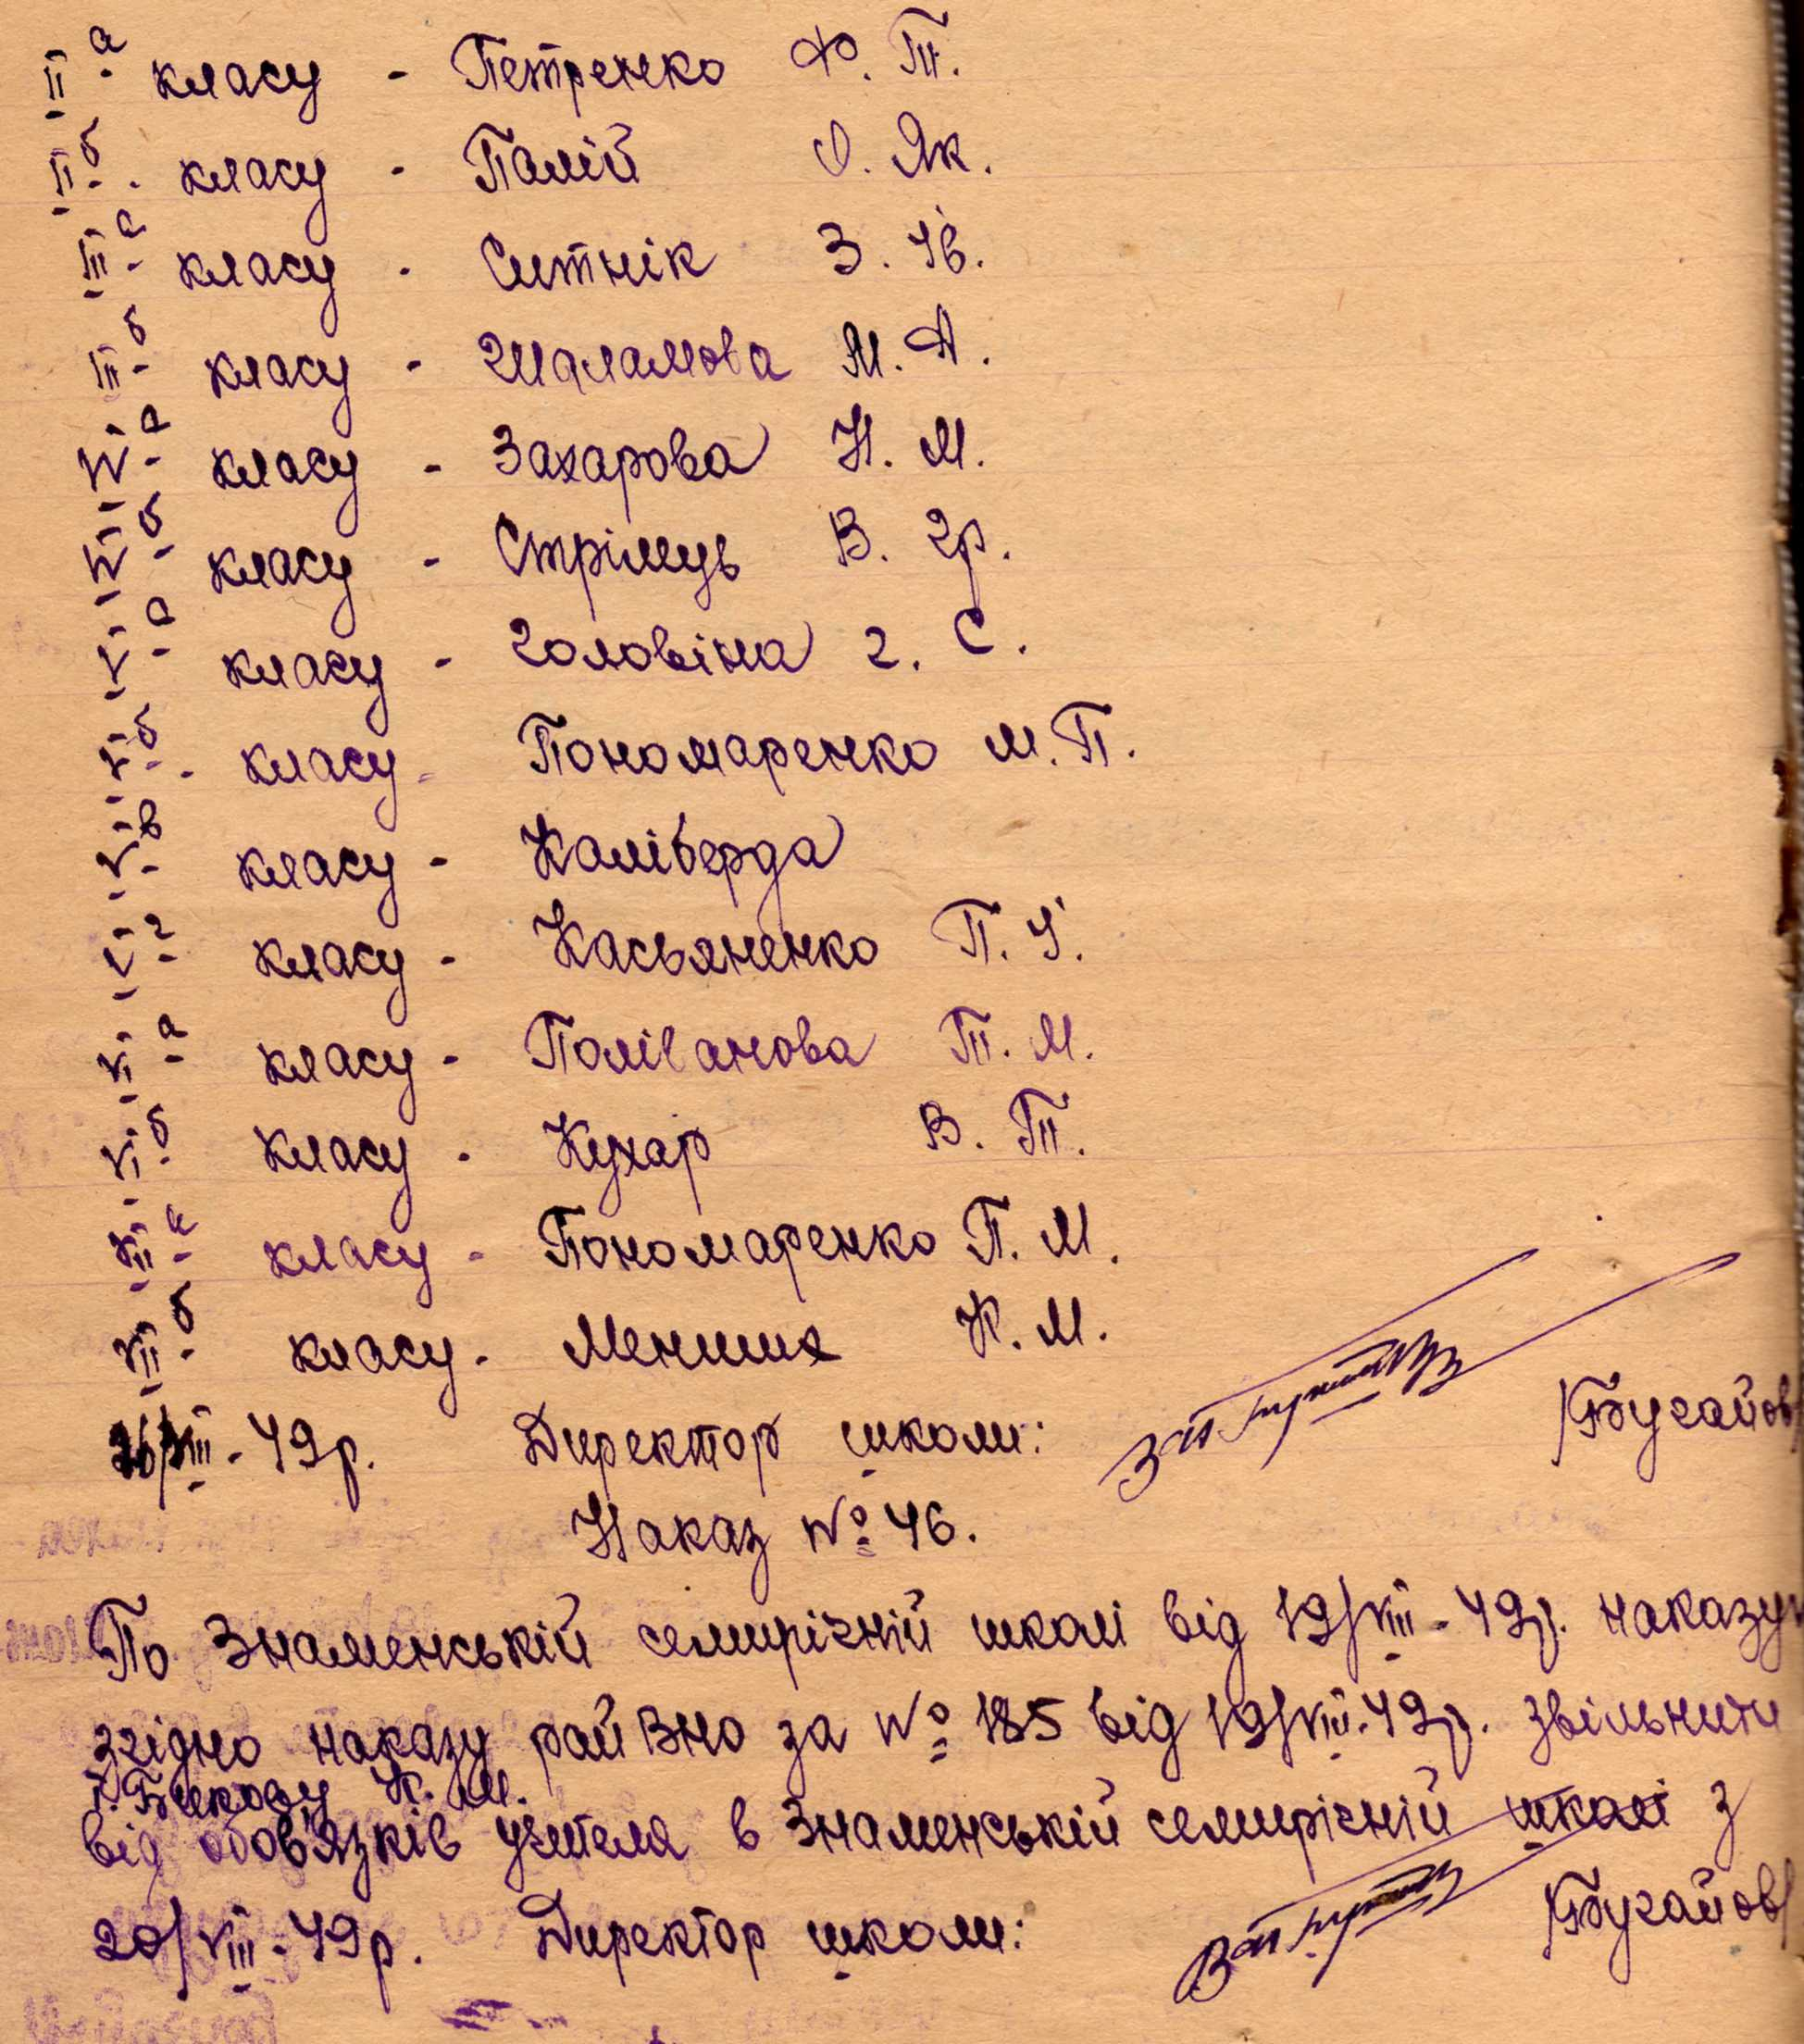 II а класу - Петренко Ф. Т.
II б класу - Палій О. Як.
III а класу - Ситнік З. Ів.
III б класу - Шаламова М. А.
IV а класу - Захарова Н. М.
IV б класу - Стрімець В. Гр.
V а класу - Головіна Г. С.
V б класу - Пономаренко М. П.
V в класу - Каліберда
V г класу - Касьяненко П. І.
VI а класу - Поліванова Т. М.
VI б класу - Кухар В. Т.
VII а класу - Пономаренко П. М.
VII б класу - Менших К. М.
26/VIII - 49 р. Директор школи: /Бугайов/
Наказ № 46.
По Знаменській семирічній школі від 19/VIII - 49 р. наказую
згідно наказу райВНО за № 185 від 19/VIII - 49 р. звільнити
т. Бикову К. М.
від обов'язків учителя в Знаменській семирічній школі з
20/VIII - 49 р. Директор школи: /Бугайов/